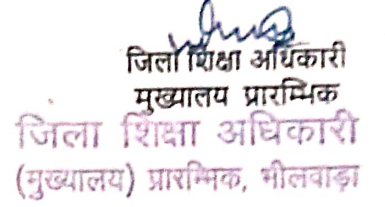 जिला शिक्षा अधिकारी
मुख्यालय प्रारम्भिक
जिला शिक्षा अधिकारी
(मुख्यालय) प्रारम्भिक, भीलवाड़ा